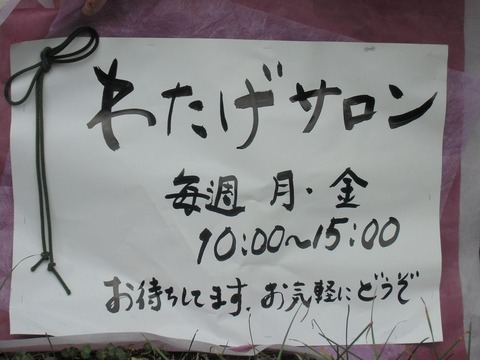 わたげサロン
毎週 月・金
10:00～15:00
お待ちしてます。お気軽にどうぞ